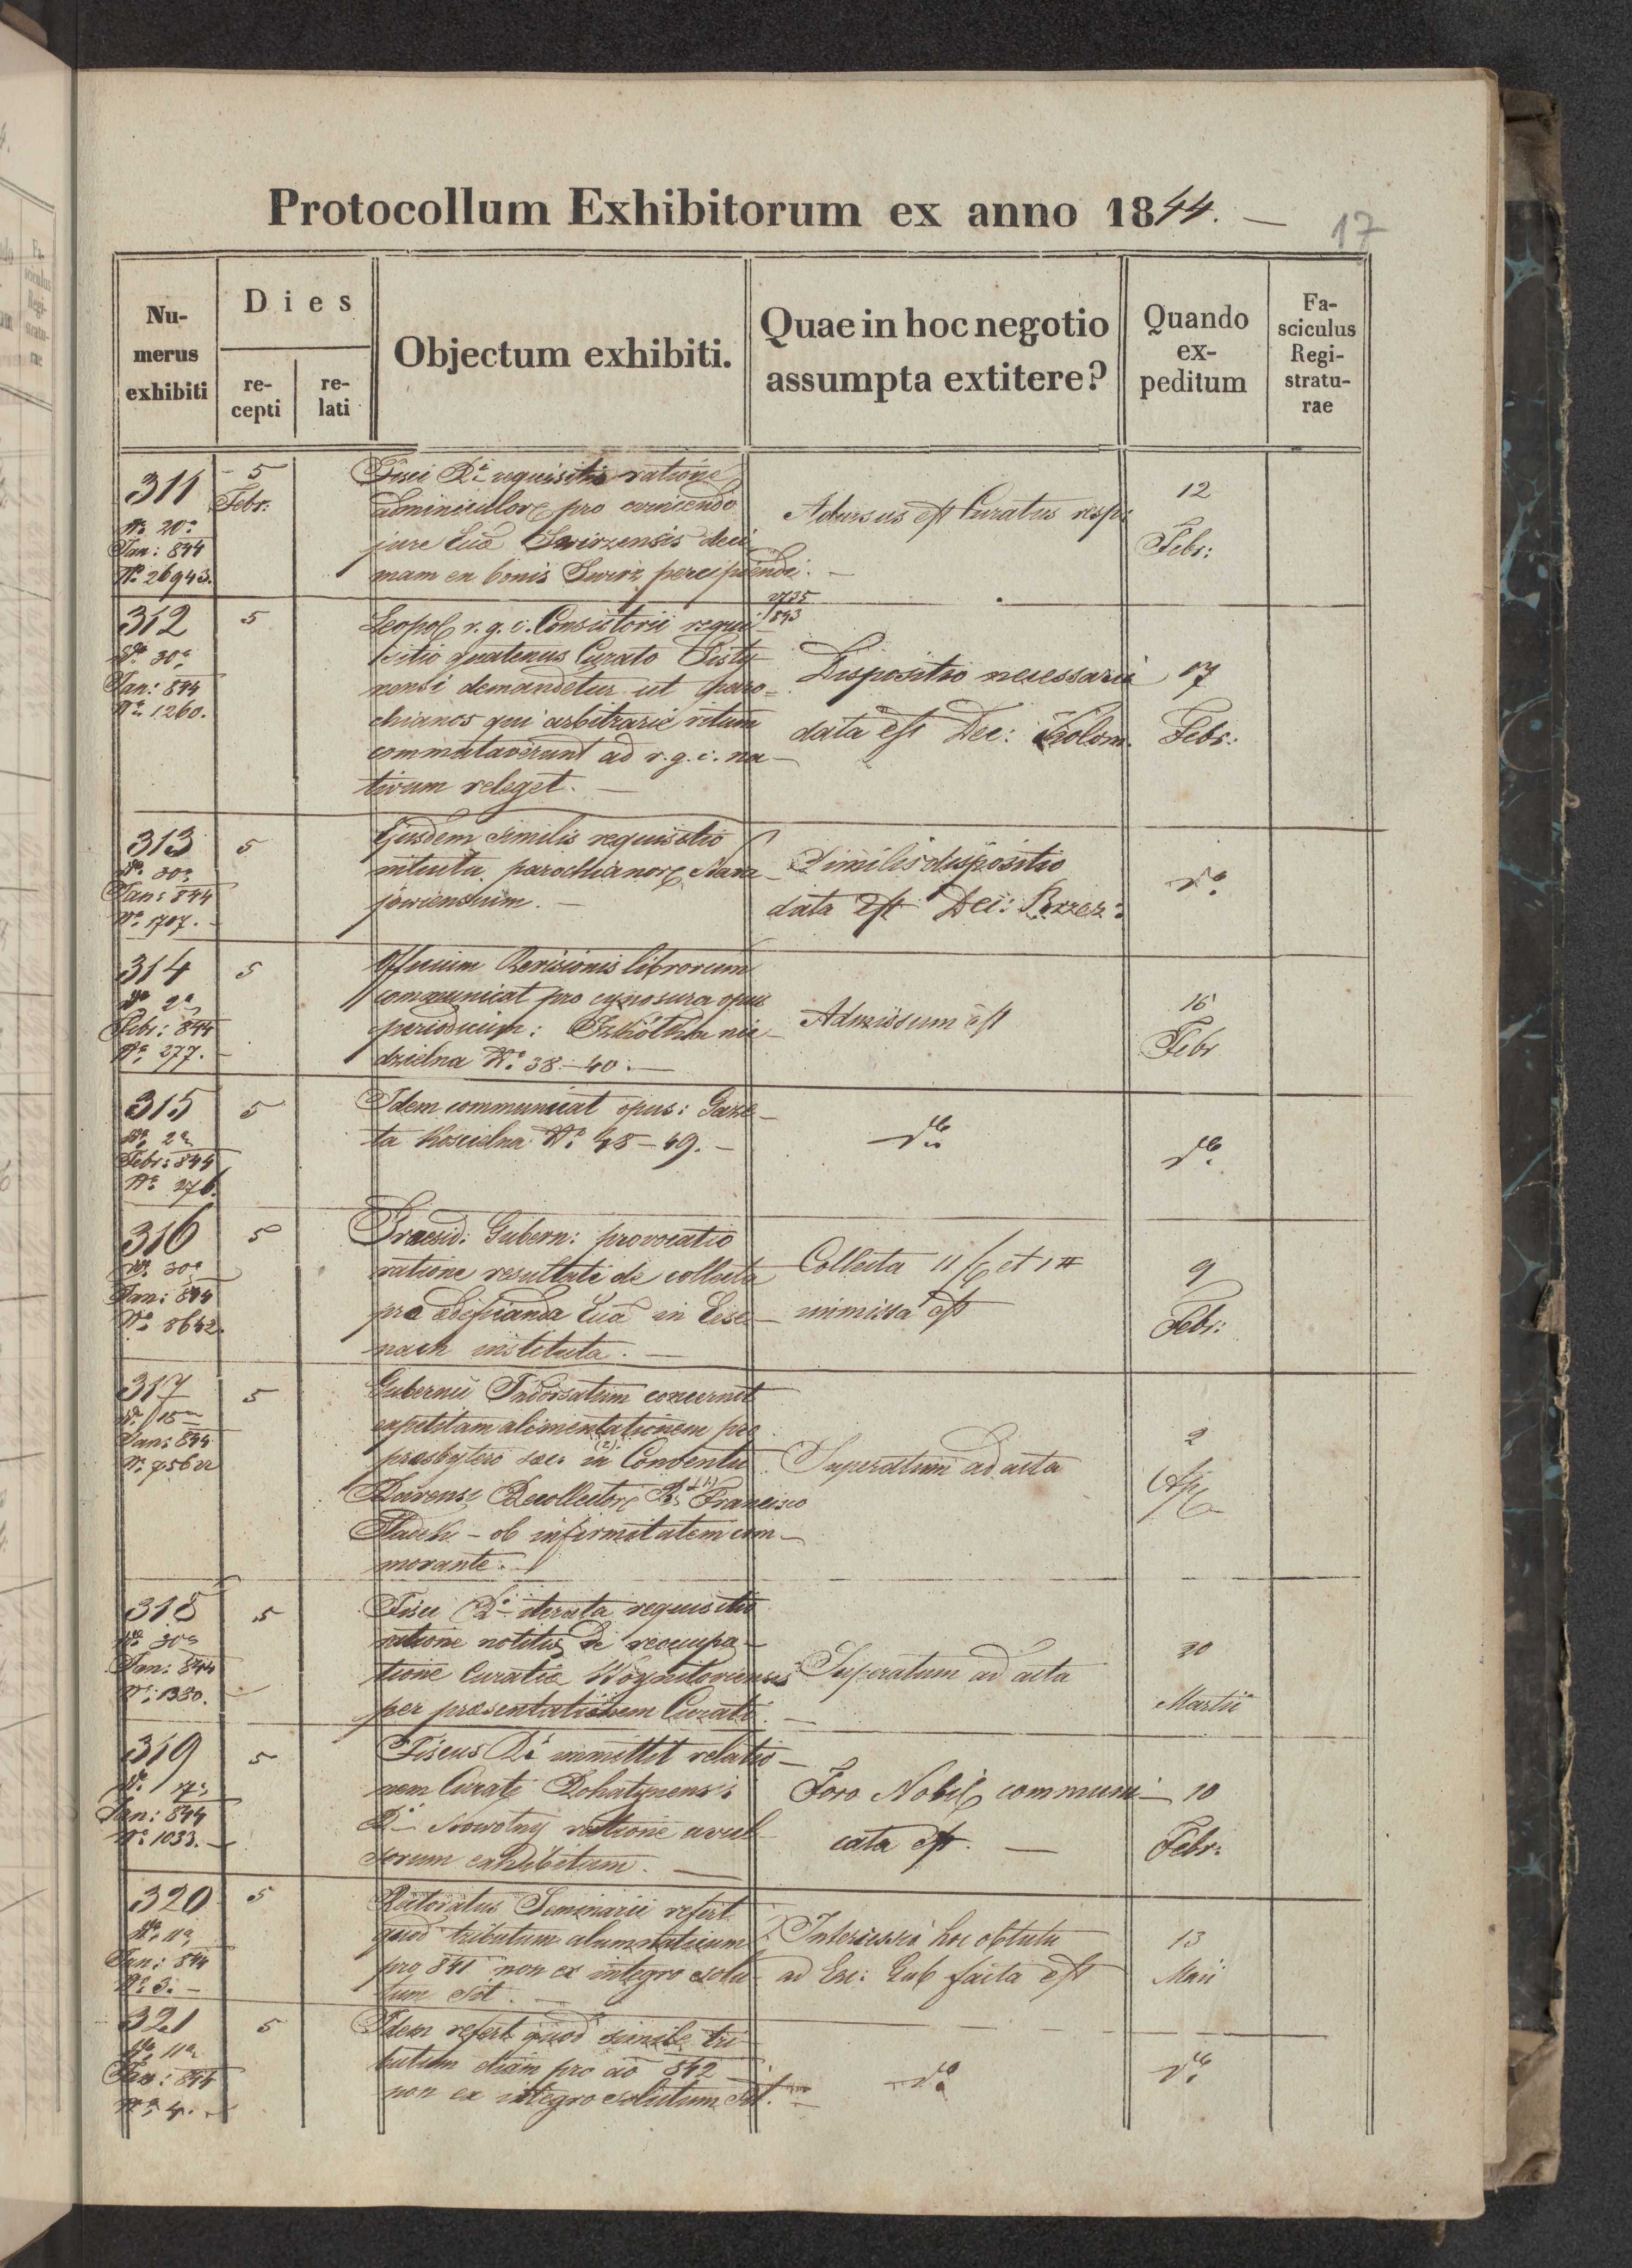 Protocollum Exhibitorum ex anno 1844. —
17
Nu-
merus
exhibiti
Dies
re-
cepti
re-
lati
Objectum exhibiti.
Quae in hoc negotio
assumpta extitere?
Quando
ex-
peditum
Fa-
sciculus
Regi-
stratu-
rae
311
5
Febr:
20
Jan: 844
No 26943.
Fisci Ri requisitio ratione
adminiculor pro evincendo
jure Eccl Swirzensis deci
mam ex bonis Swirz percipiendi. —
Curatus
12
Febr:
312
30
Jan: 844
No 1260.
5
Leopol r. g. c. Consistorii requi
sitio quatenus Curato Pisty
nensi demandetur ut paro-
chianos qui arbitrarie ritum
commutaverunt ad r. g. c. na-
tivum releget. —
2735
843
Dispositio necessaria
data est Dec: Kolom.
17
Febr:
313
30
Jan: 844
No 1707.
5
Ejusdem similis requisitio
intuitu parochianor Nara
jowiensium. —
Similis dispositio
data est Dec: Brzez:
do
314
2
Febr: 844
No 277.
5
Officium Revisionis librorum
communicat pro cynosura opus
periodicum: Szkółka nie
dzielna No 38 – 40. —
Admissum est
16
Febr
315
2
Febr: 844
No 276.
5
Idem communicat opus: Gaze-
ta Koscielna No 48 – 49. —
do
do
316
30
Jan: 844
No 8642
5
Praesid: Gubern: provocatio
ratione resultati de collecta
pro aedificanda Eccl in Eise-
nach instituta. —
Collecta 11 f et 1 x
immissa est
9
Febr:
317
15
Jan: 844
5
Gubernii Indorsatum concernit
expetitam alimentationem pro
presbytero saec in (2) Conventu
Recollector (1) Francisco
Hladeki – ob infirmitatem com-
morante.
Superatum ad acta
2
Apr
318
30
Jan: 844
No 1330.
5
Fisci Ri iterata requisitio
ratione notitiae de reoccupa-
tione Curatiae Woynitoviensis
per praesentationem Curati. —
Superatum ad acta
20
Martii
319
17
Jan: 844
No 1033. —
5
Fiscus Ri immittit relatio-
nem Curati Rohatynensis
Ri Nowotny ratione avul
sorum exhibitum. —
Foro Nobil communi-
cata est. —
10
Febr:
320
11
Jan: 844
No 3. —
5
Rectoratus Seminarii refert
quod tributum alumnaticum
pro 841 non ex integro solu
tum sit. —
Intercessio hoc obtutu
ad Exc: Gub facta est
13
Maii
321
11
Jan: 844
No 4. —
5
Idem refert quod simile tri
butum etiam pro ao 842
non ex integro solutum sit. —
do
do